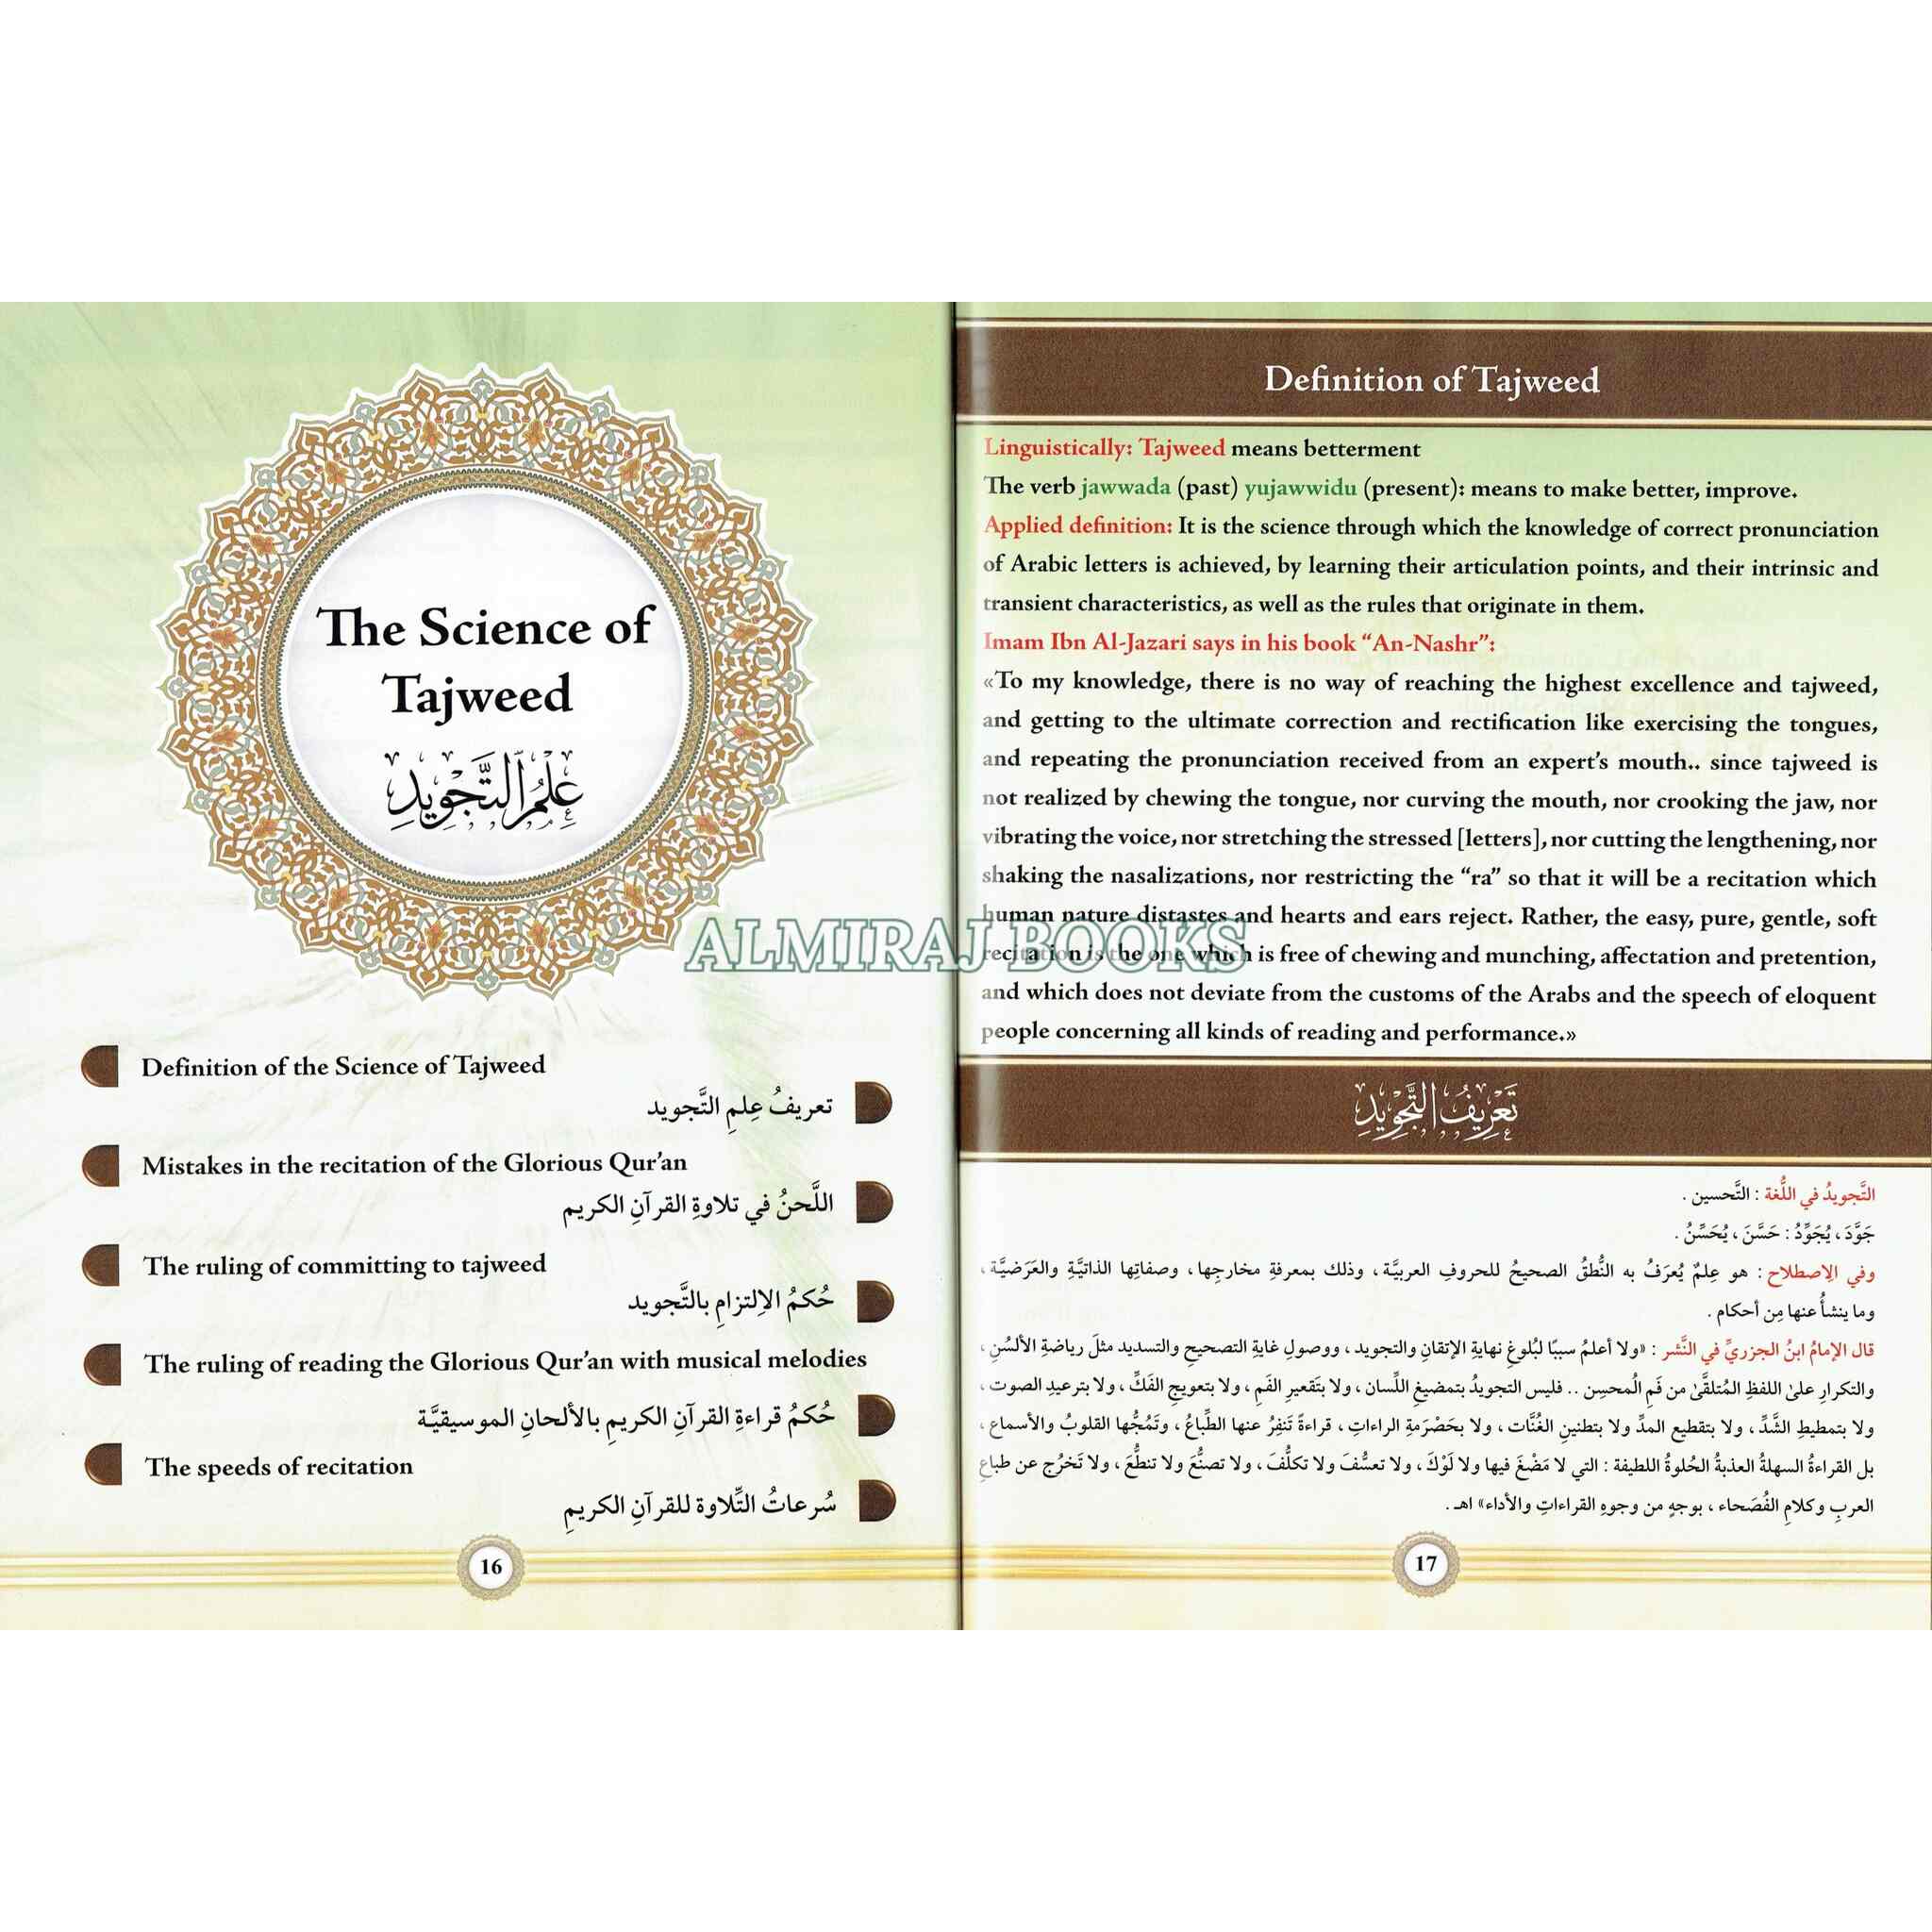 The Science of
Tajweed
عِلْمُ التَّجْوِيدِ
Definition of the Science of Tajweed
تعريفُ عِلمِ التَّجويد
Mistakes in the recitation of the Glorious Qur’an
اللَّحنُ في تلاوةِ القرآنِ الكريم
The ruling of committing to tajweed
حُكمُ الاِلتزامِ بالتَّجويد
The ruling of reading the Glorious Qur’an with musical melodies
حُكمُ قراءةِ القرآنِ الكريمِ بالألحانِ الموسيقيَّة
The speeds of recitation
سُرعاتُ التِّلاوة للقرآنِ الكريمِ
16
Definition of Tajweed
Linguistically: Tajweed means betterment
The verb jawwada (past) yujawwidu (present): means to make better, improve.
Applied definition: It is the science through which the knowledge of correct pronunciation
of Arabic letters is achieved, by learning their articulation points, and their intrinsic and
transient characteristics, as well as the rules that originate in them.
Imam Ibn Al-Jazari says in his book “An-Nashr”:
«To my knowledge, there is no way of reaching the highest excellence and tajweed,
and getting to the ultimate correction and rectification like exercising the tongues,
and repeating the pronunciation received from an expert’s mouth.. since tajweed is
not realized by chewing the tongue, nor curving the mouth, nor crooking the jaw, nor
vibrating the voice, nor stretching the stressed [letters], nor cutting the lengthening, nor
shaking the nasalizations, nor restricting the “ra” so that it will be a recitation which
human nature distastes and hearts and ears reject. Rather, the easy, pure, gentle, soft
recitation is the one which is free of chewing and munching, affectation and pretention,
and which does not deviate from the customs of the Arabs and the speech of eloquent
people concerning all kinds of reading and performance.»
تَعْرِيفُ التَّجْوِيدِ
التَّجويدُ في اللُّغة : التَّحسين .
جَوَّدَ ، يُجَوِّدُ : حَسَّنَ ، يُحَسِّنُ .
وفي الاِصطلاح : هو عِلمٌ يُعرَفُ به النُّطقُ الصحيحُ للحروفِ العربيَّة ، وذلك بمعرفةِ مخارجِها ، وصفاتِها الذاتيَّةِ والعَرَضيَّة ،
وما ينشأُ عنها مِن أحكام .
قال الإمامُ ابنُ الجزريِّ في النَّشر : «ولا أعلمُ سببًا لبُلوغِ نهايةِ الإتقانِ والتجويد ، ووصولِ غايةِ التصحيحِ والتسديد مثلَ رياضةِ الألسُنِ ،
والتكرارِ علىٰ اللفظِ المُتلقَّىٰ من فَمِ المُحسِن .. فليس التجويدُ بتمضيغِ اللِّسان ، ولا بتَقعيرِ الفَمِ ، ولا بتعويجِ الفَكِّ ، ولا بترعيدِ الصوت ،
ولا بتمطيطِ الشَّدِّ ، ولا بتقطيعِ المدِّ ولا بتطنينِ الغُنَّات ، ولا بحَصْرَمةِ الراءاتِ ، قراءةً تَنفِرُ عنها الطِّباعُ ، وتَمُجُّها القلوبُ والأسماع ،
بل القراءةُ السهلةُ العذبةُ الحُلوةُ اللطيفة : التي لا مَضْغَ فيها ولا لَوْكَ ، ولا تعسُّفَ ولا تكلُّفَ ، ولا تصنُّعَ ولا تنطُّعَ ، ولا تَخرُج عن طباعِ
العربِ وكلامِ الفُصَحاء ، بوجهٍ من وجوهِ القراءاتِ والأداء» اهـ .
17
ALMIRAJ BOOKS